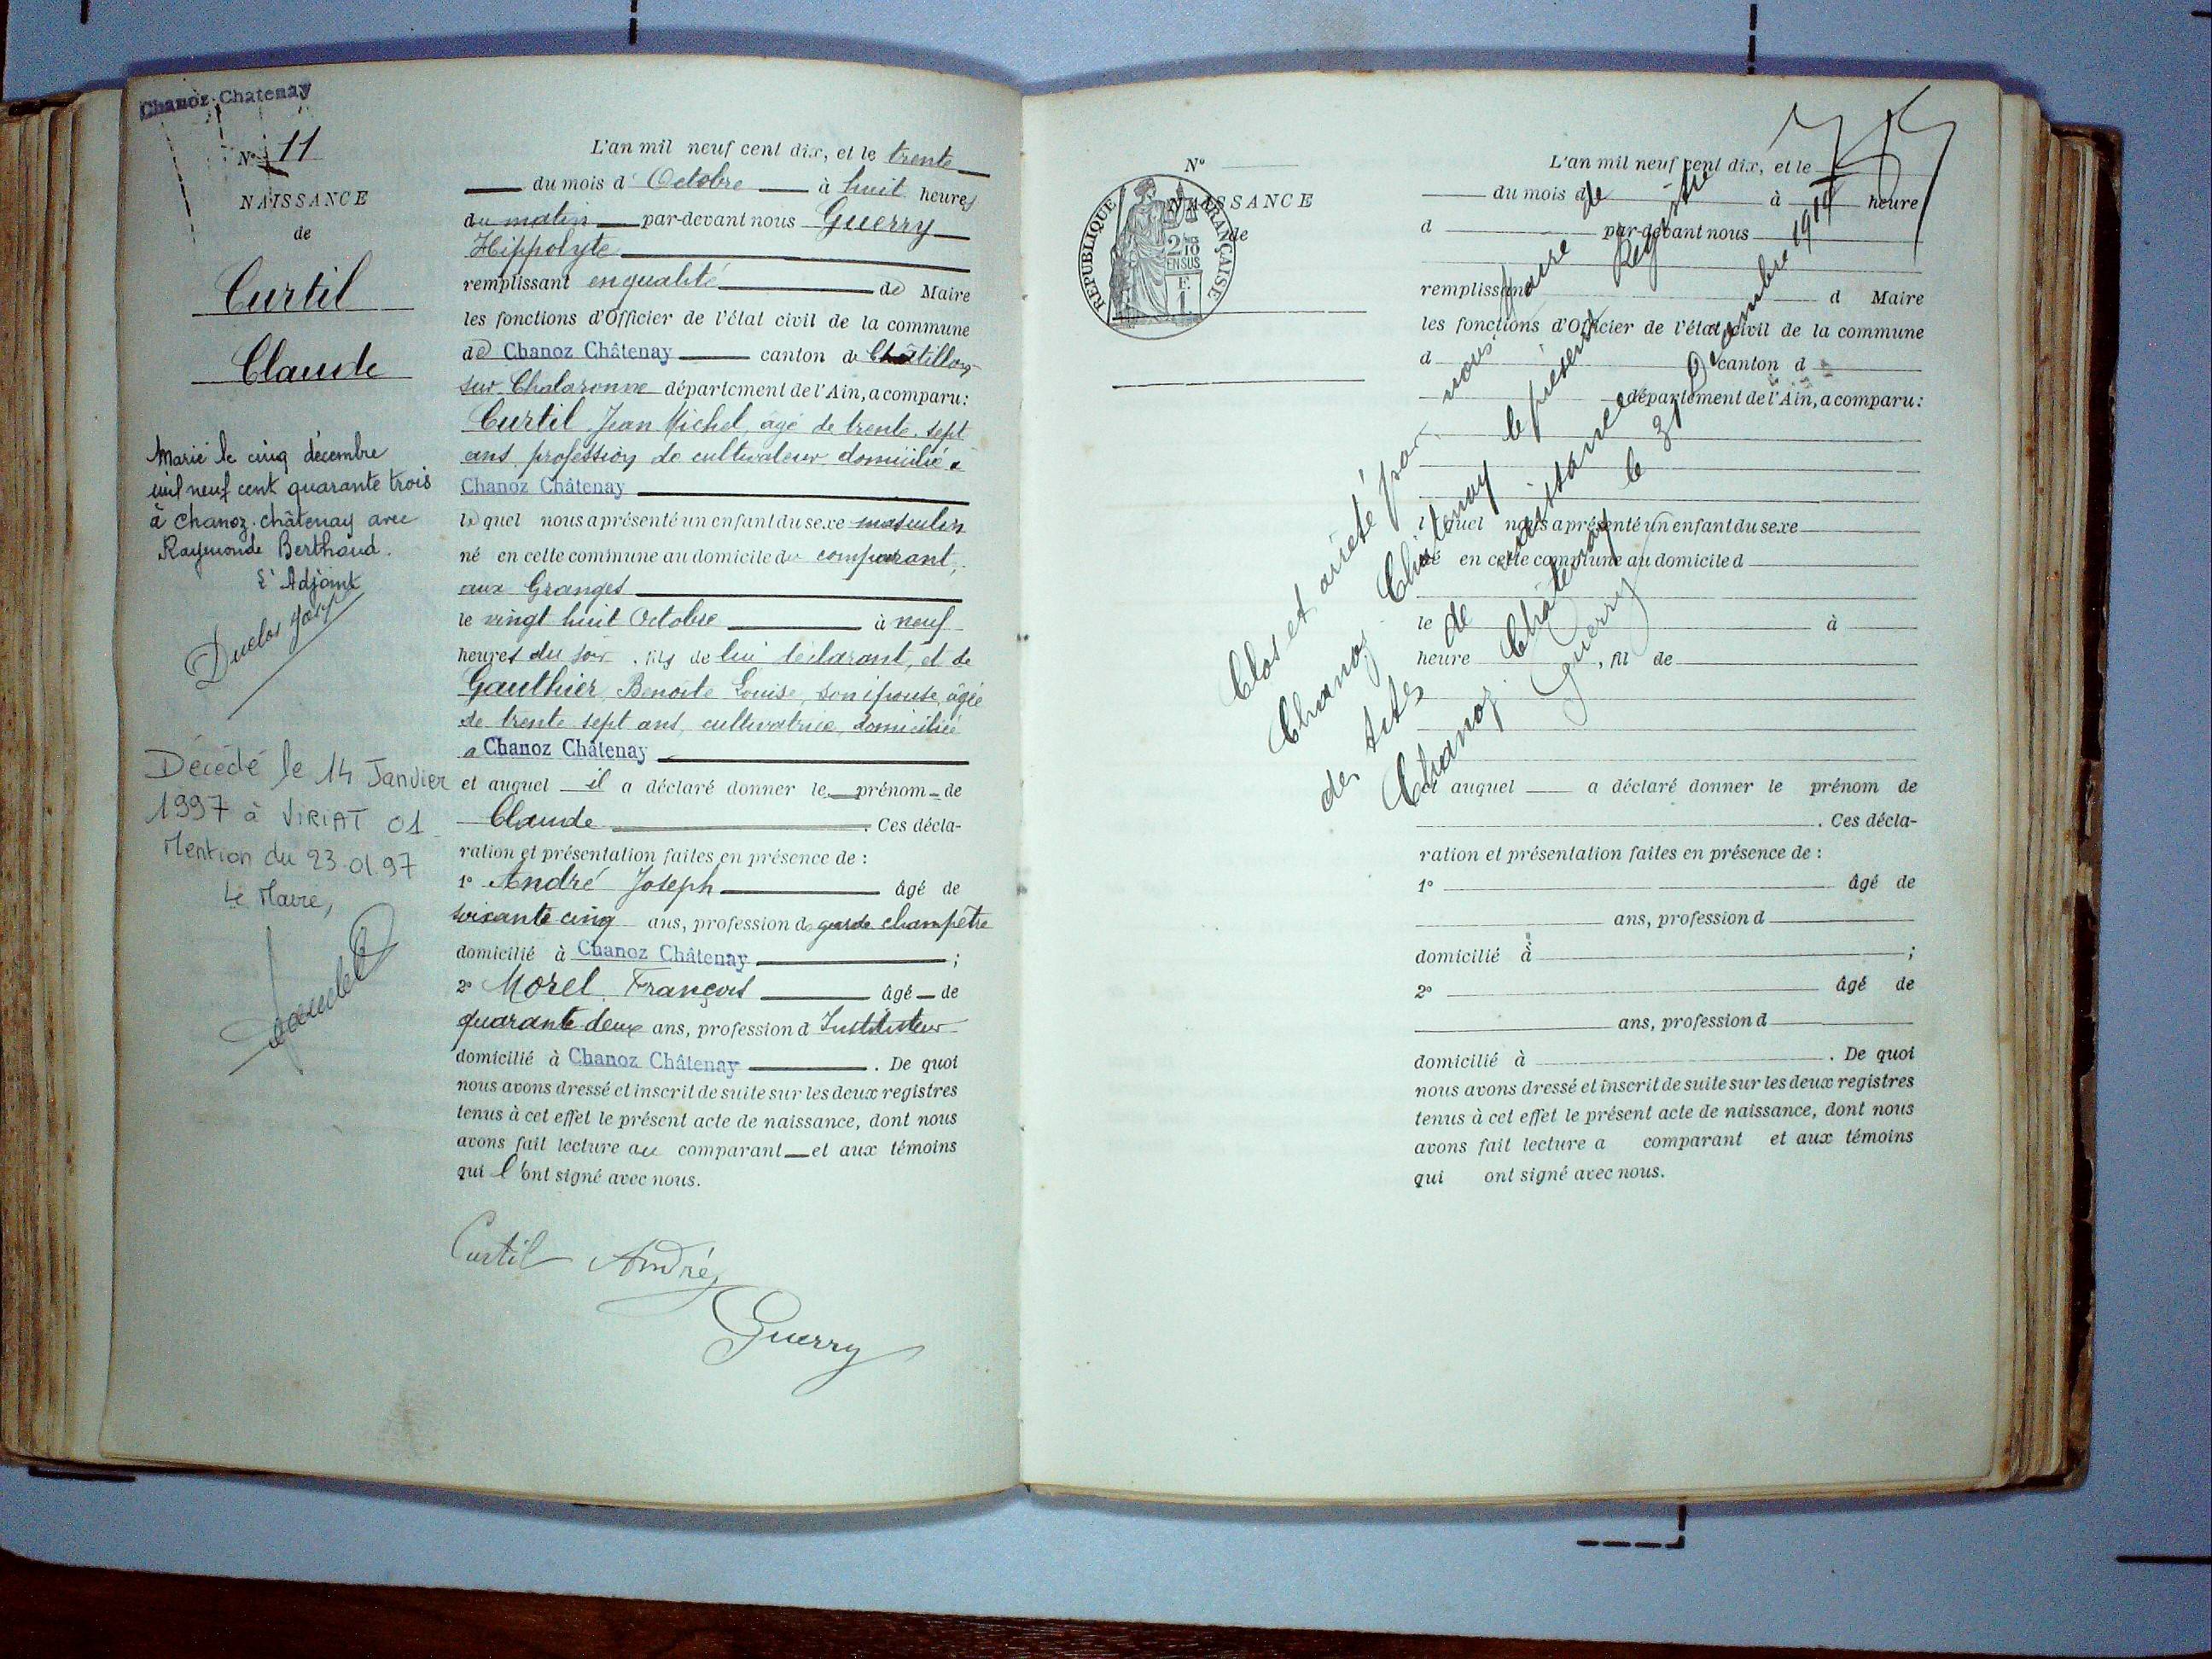 Chanoz-Chatenay
N° 11
NAISSANCE
de
Curtil
Claude
Marié le cinq décembre
mil neuf cent quarante trois
à Chanoz-Châtenay avec
Raymonde Berthaud.
L'Adjoint
Duclos
Décédé le 14 Janvier
1997 à VIRIAT 01
Mention du 23.01.97
Le Maire,
L'an mil neuf cent dix, et le trente
du mois d'Octobre à huit heures
du matin par-devant nous Guerry
Hippolyte
remplissant en qualité de Maire
les fonctions d'Officier de l'état civil de la commune
de Chanoz Châtenay canton de Châtillon
sur Chalaronne département de l'Ain, a comparu:
Curtil Jean Michel, âgé de trente-sept
ans, profession de cultivateur domicilié à
Chanoz Châtenay
lequel nous a présenté un enfant du sexe masculin
né en cette commune au domicile du comparant,
aux Granges
le vingt huit Octobre à neuf
heures du soir, fils de lui déclarant, et de
Gauthier Benoite Louise, son épouse, âgée
de trente sept ans, cultivatrice, domiciliée
a Chanoz Châtenay
et auquel il a déclaré donner le prénom de
Claude . Ces décla-
ration et présentation faites en présence de :
1° André Joseph âgé de
soixante cinq ans, profession de garde champêtre
domicilié à Chanoz Châtenay ;
2° Morel François âgé de
quarante deux ans, profession d Instituteur
domicilié à Chanoz Châtenay . De quoi
nous avons dressé et inscrit de suite sur les deux registres
tenus à cet effet le présent acte de naissance, dont nous
avons fait lecture au comparant et aux témoins
qui l'ont signé avec nous.
Curtil André
Guerry
N°
NAISSANCE
de
RÉPUBLIQUE FRANÇAISE
2/10
EN SUS
E.
1
L'an mil neuf cent dix, et le
du mois d à heure
d par-devant nous
remplissant d Maire
les fonctions d'Officier de l'état civil de la commune
d canton d
département de l'Ain, a comparu:
l quel nous a présenté un enfant du sexe
né en cette commune au domicile d
le à
heure , fil de
et auquel a déclaré donner le prénom de
. Ces décla-
ration et présentation faites en présence de :
1° âgé de
ans, profession d
domicilié à ;
2° âgé de
ans, profession d
domicilié à . De quoi
nous avons dressé et inscrit de suite sur les deux registres
tenus à cet effet le présent acte de naissance, dont nous
avons fait lecture a comparant et aux témoins
qui ont signé avec nous.
Clos et arrêté par nous, Maire de
Chanoz Châtenay le présent Registre
des Actes de Naissance
Chanoz Châtenay le 31 Décembre 1910
Guerry